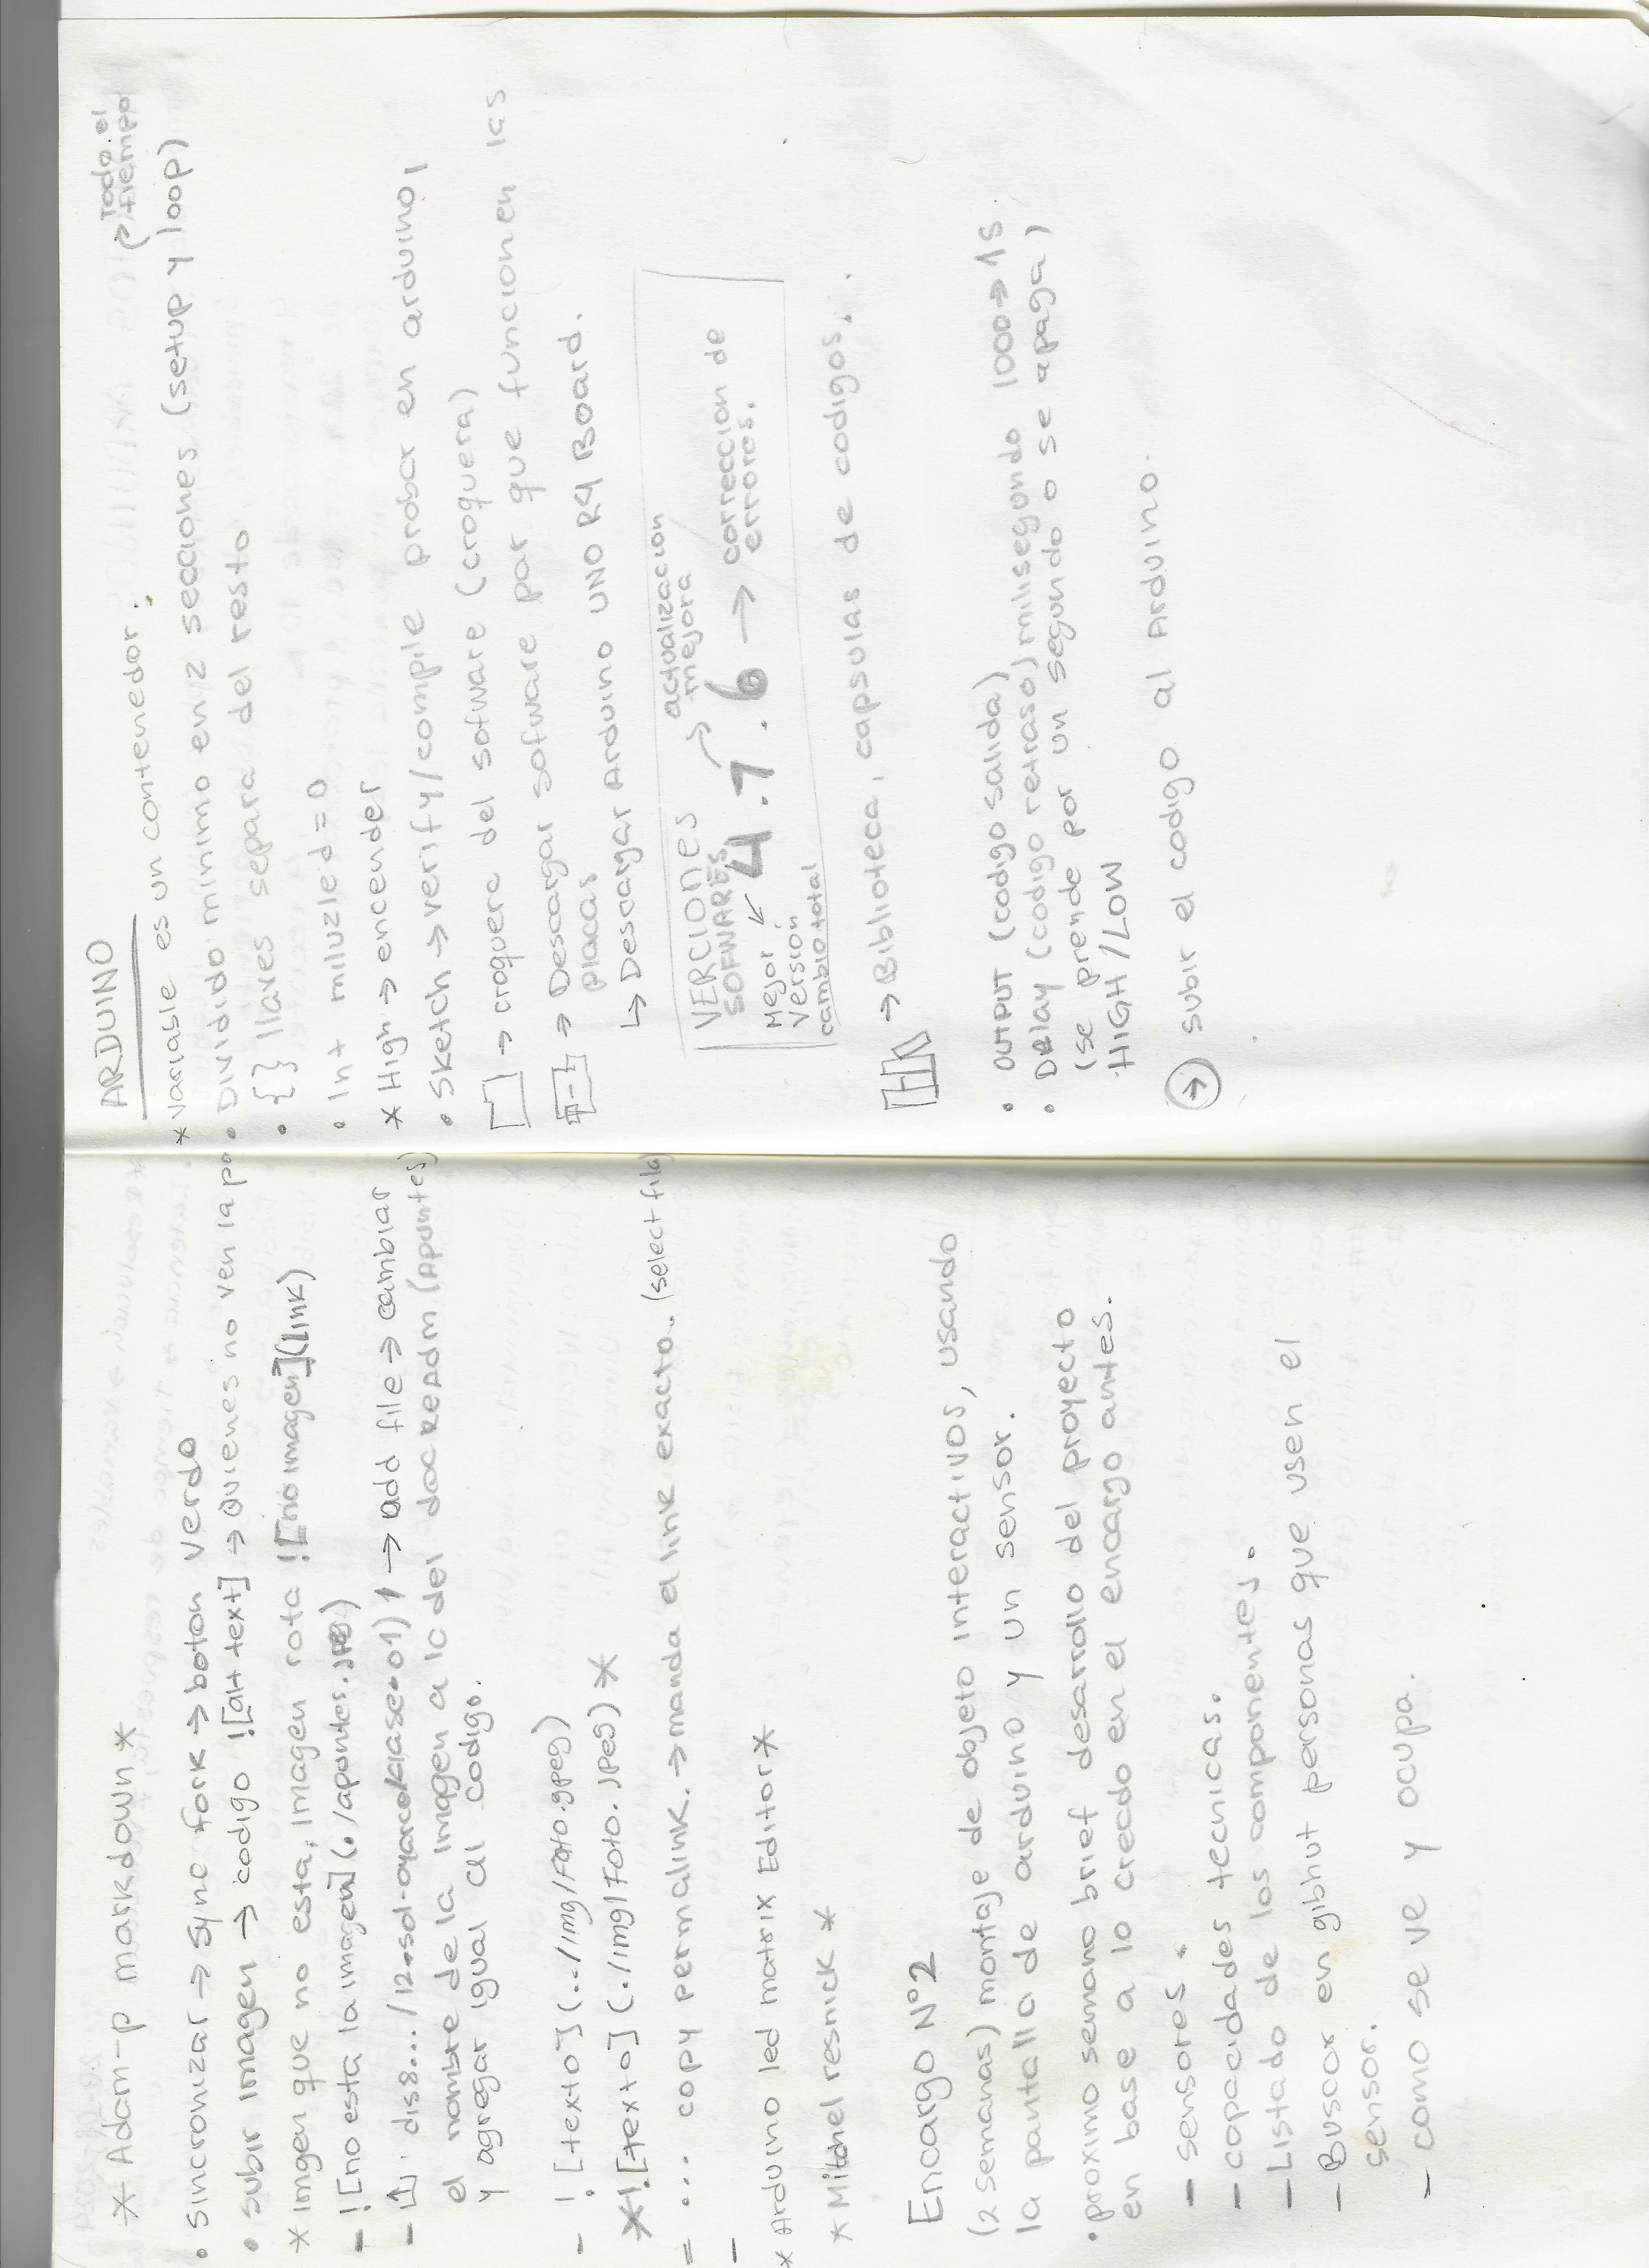 * Adam-p markdown *
• sincronizar → sync fork → boton verde
• subir imagen → codigo ![alt text] → Quienes no ven la pa
* imgen que no esta, imagen rota ![no imagen](link)
- ![no esta la imagen](./apuntes.jpeg)
- dis8.../12-sol-oyarce/clase-01) → add file → cambiar
el nombre de la imagen a la del doc Readm (Apuntes)
y agregar igual al codigo.
- ! [texto](../img/Foto.gpeg)
*! [texto] (./img/Foto.Jpeg) *
= ... copy permalink. → manda el link exacto.. (select fila)
-
* Arduino led matrix Editor *
* Mitchel resnick *
Encargo N°2
(2 semanas) montaje de objeto interactivos, usando
la pantalla de arduino y un sensor.
• proximo semano brief desarrollo del proyecto
en base a lo creado en el encargo antes.
- sensores.
- capacidades tecnicas.
- Listado de los componentes.
- Buscar en gibhut personas que usen el
sensor.
- como se ve y ocupa.
ARDUINO
* variable es un contenedor.
→ Todo el
tiempo
• Dividido minimo en 2 secciones (setup y loop)
• {} llaves separa del resto
• Int miluzled = 0
* High → encender
• Sketch → verify/compile probar en arduino,
→ croquera del sofware (croquera)
→ Descargar sofware par que funcionen las
placas
↳ Descargar Arduino UNO R4 Board.
VERCIONES
SOFWARES
actualizacion
mejora
4.7.6 → correccion de
errores.
Mejor
version
cambio total
→ Biblioteca, capsulas de codigos.
• OUTPUT (codigo salida)
• Delay (codigo retraso) milisegundo 1000 → 1s
(se prende por un segundo o se apaga)
HIGH/LOW
→ subir el codigo al Arduino.